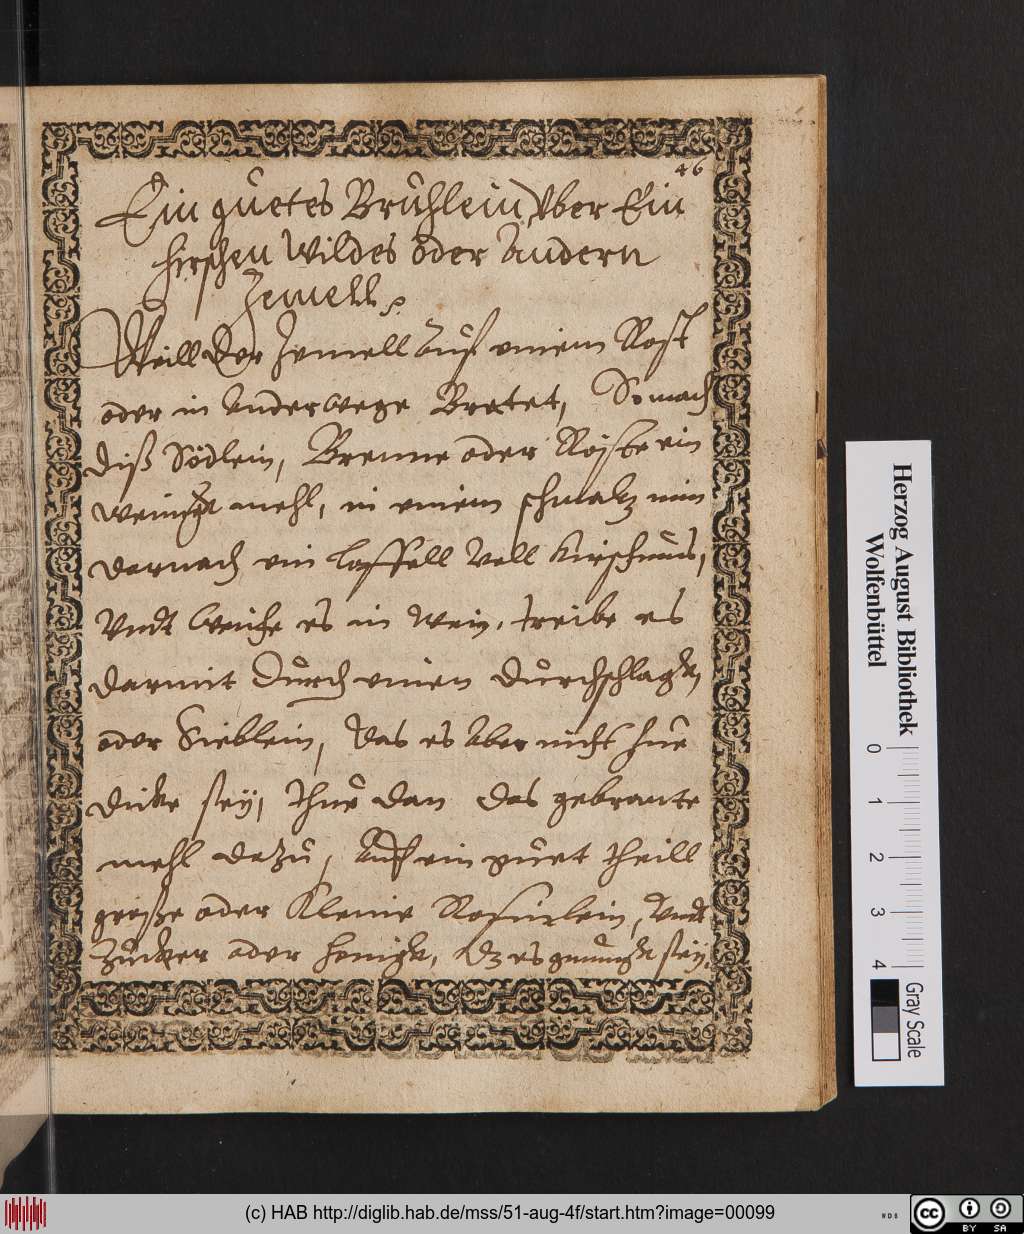 46
Ein guetes Brühlein, Vber Ein
hirschen Wildes oder Andern
Zemell
Weill der Zemell Auf einem Rost
oder in Anderwege Bratet, So mach
diß Södlein, Brenne oder Röste ein
wenigk mehl, in einem schmaltz nim
darnach ein löffell Voll Kirschmus,
Vndt weiche es in Wein, treibe es
darmit Durch einen Durchschlagk,
oder Sieblein, das es Aber nicht hue
dicke sey, thue dan das gebrante
mehl dazu, Auf ein guet theill
große oder Kleine Rosinlein, Vndt
Zucker oder honigk, dz es genungk sey,
Herzog August Bibliothek
Wolfenbüttel
0 1 2 3 4
Gray Scale
(c) HAB http://diglib.hab.de/mss/51-aug-4f/start.htm?image=00099
WDB
cc BY SA